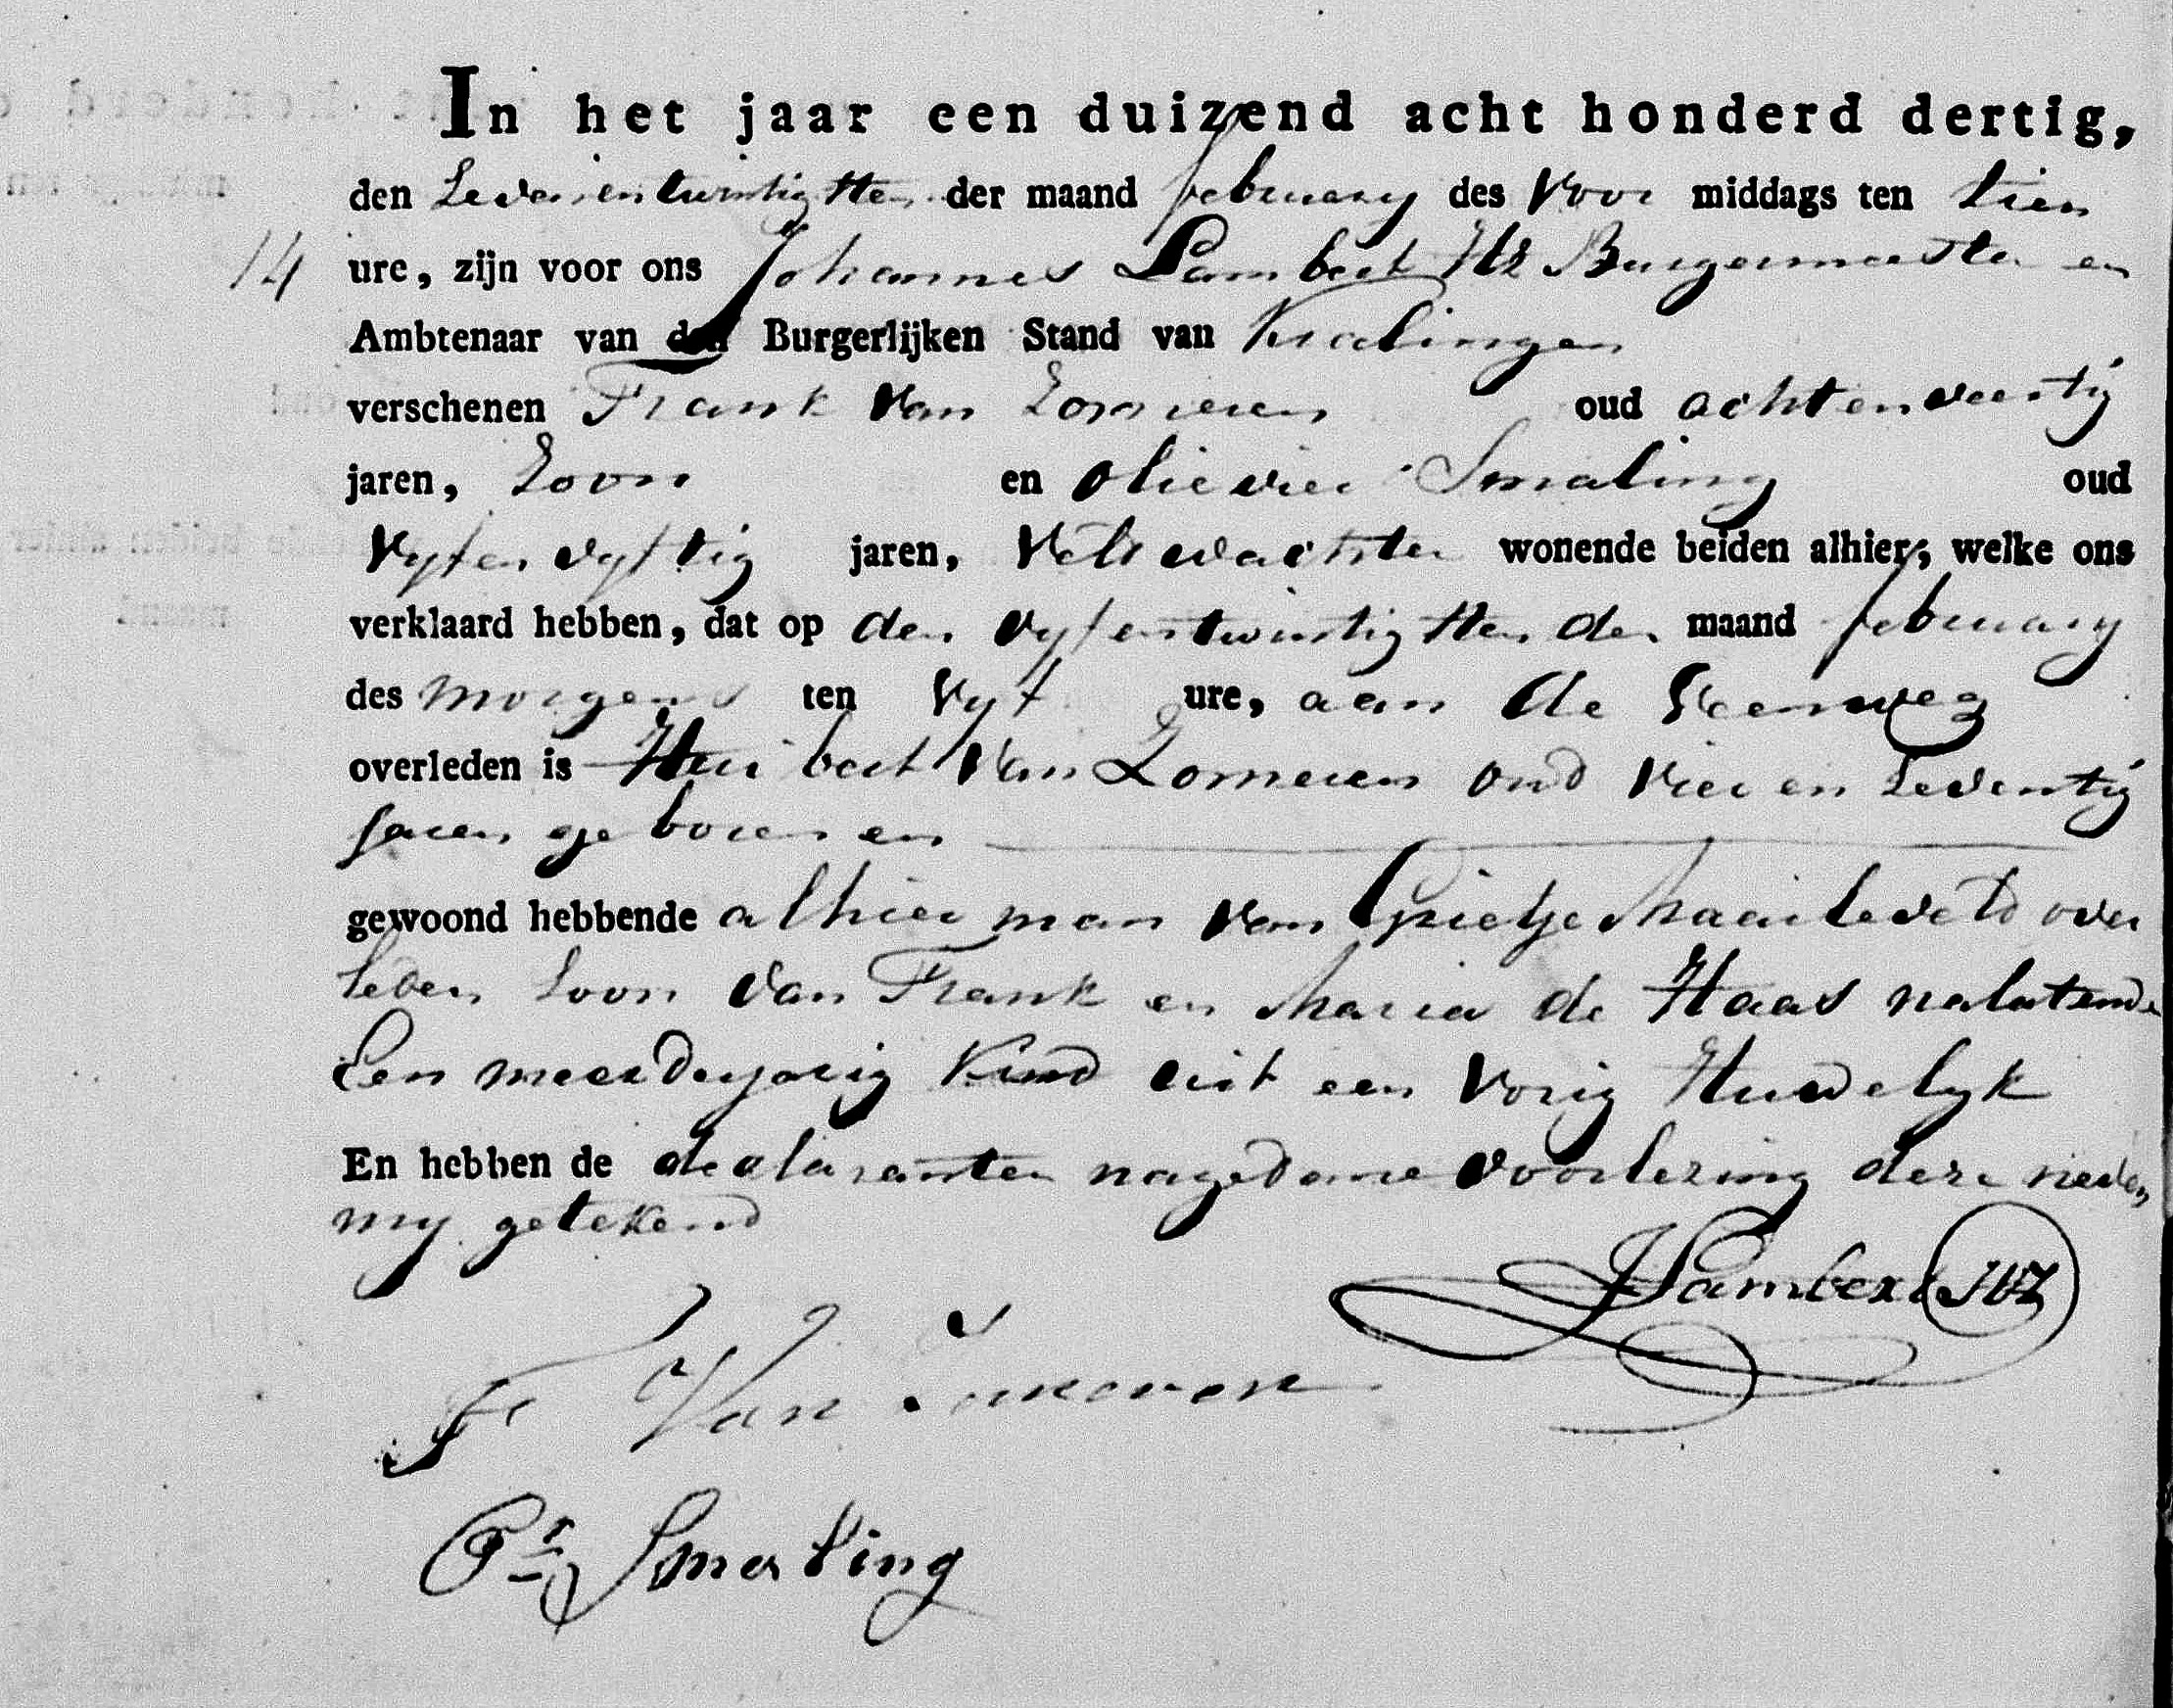 In het jaar een duizend acht honderd dertig,
den Zevenentwintigsten der maand february des Voor middags ten tien
14 ure, zijn voor ons Johannes Lambert Hz Burgermeester en
Ambtenaar van den Burgerlijken Stand van Kralingen
verschenen Frank van Zomeren oud achtenveertig
jaren, Zoon en Olievier Smaling oud
Vyfenvyftig jaren, Veltwachter wonende beiden alhier, welke ons
verklaard hebben, dat op den vyfentwintigsten der maand february
des morgens ten Vyf ure, aan de Veenweg
overleden is Huibert Van Zomeren oud Vier en Zeventig
Jaren geboren en
gewoond hebbende alhier man van Grietje over
leden Zoon van Frank en Maria de Haas nalatende
Een meerderjarig Kind uit een Vorig Huwelyk
En hebben de declaranten nagedane voorlezing deze neven
my getekend
JLambert HZ
F Van Zomeren
Or Smaling